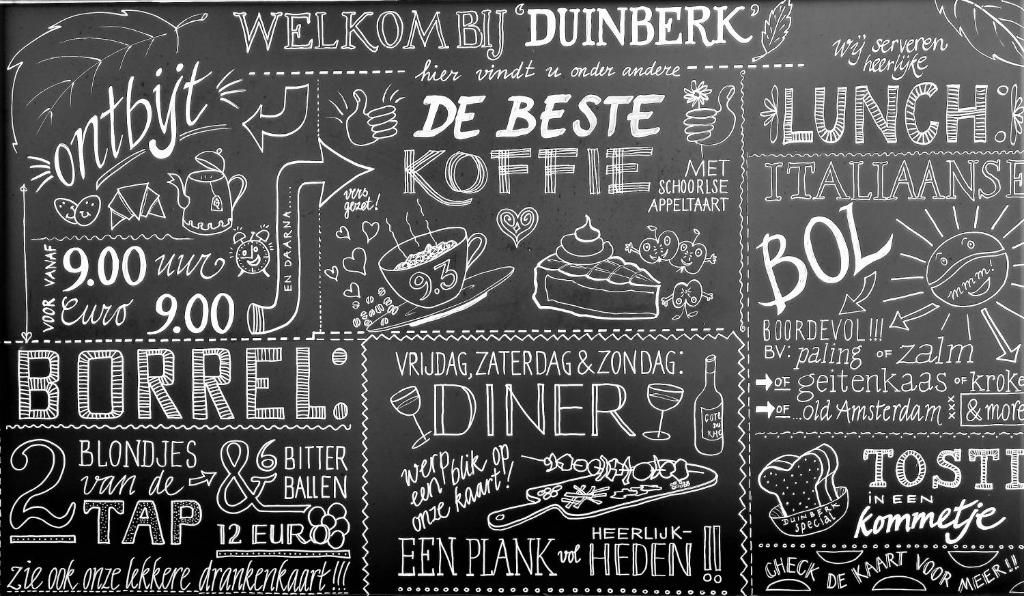 WELKOM BIJ 'DUINBERK'
hier vindt u onder andere
ontbijt
VOOR VANAF
9.00 uur
Euro 9.00
EN DAARNA....
DE BESTE
KOFFIE
MET
SCHOORLSE
APPELTAART
vers
gezet!
9.3
wij serveren
heerlijke
LUNCH:
ITALIAANSE
BOL
mmm.
BOORDEVOL!!!
BV: paling OF zalm
OF geitenkaas OF kroke
OF ...old Amsterdam xxx & more
BORREL:
2 BLONDJES
van de
TAP
& 6 BITTER
BALLEN
12 EURO
zie ook onze lekkere drankenkaart!!!
VRIJDAG, ZATERDAG & ZONDAG:
DINER
COTE
DU
werp
een blik op
onze kaart!
EEN PLANK vol HEERLIJK-
HEDEN!!
DUINBERK
special
TOSTI
IN EEN
kommetje
CHECK DE KAART VOOR MEER!!